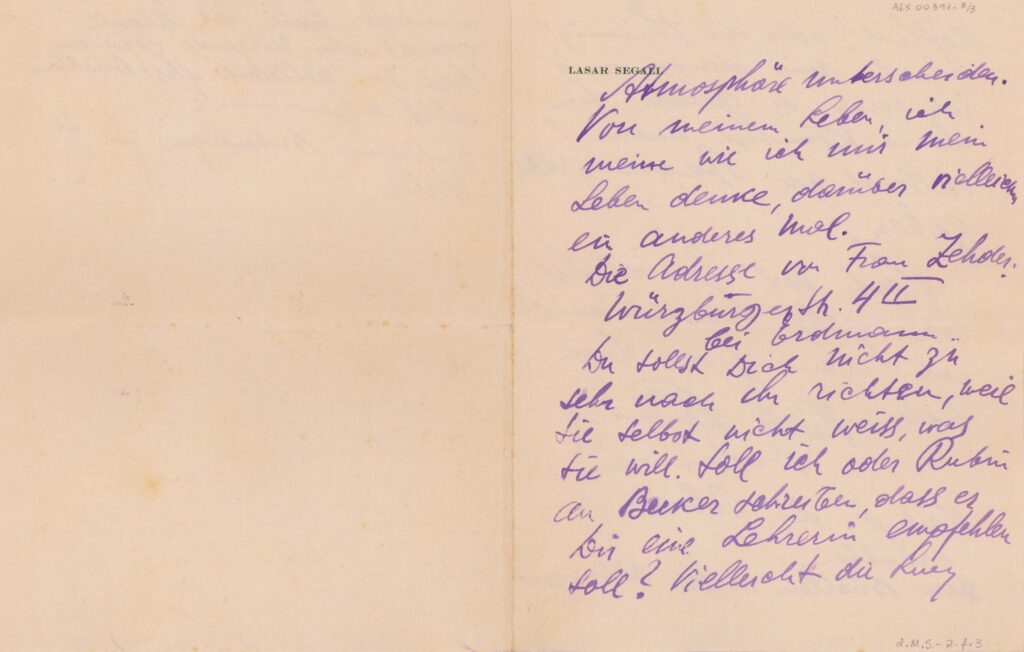 ALS 00391-3/3
LASAR SEGALL
Atmosphäre unterscheiden.
Von meinem Leben, ich
meine wie ich mir mein
Leben denke, darüber vielleicht
ein anderes Mal.
Die Adresse von Frau Zehder:
Würzburger Str. 4 II
bei Erdmann.
Du sollst Dich nicht zu
sehr nach ihr richten, weil
sie selbst nicht weiss, was
sie will. Soll ich oder Rubin
an Becker schreiben, dass er
Dir eine Lehrerin empfehlen
soll? Vielleicht die Lucy